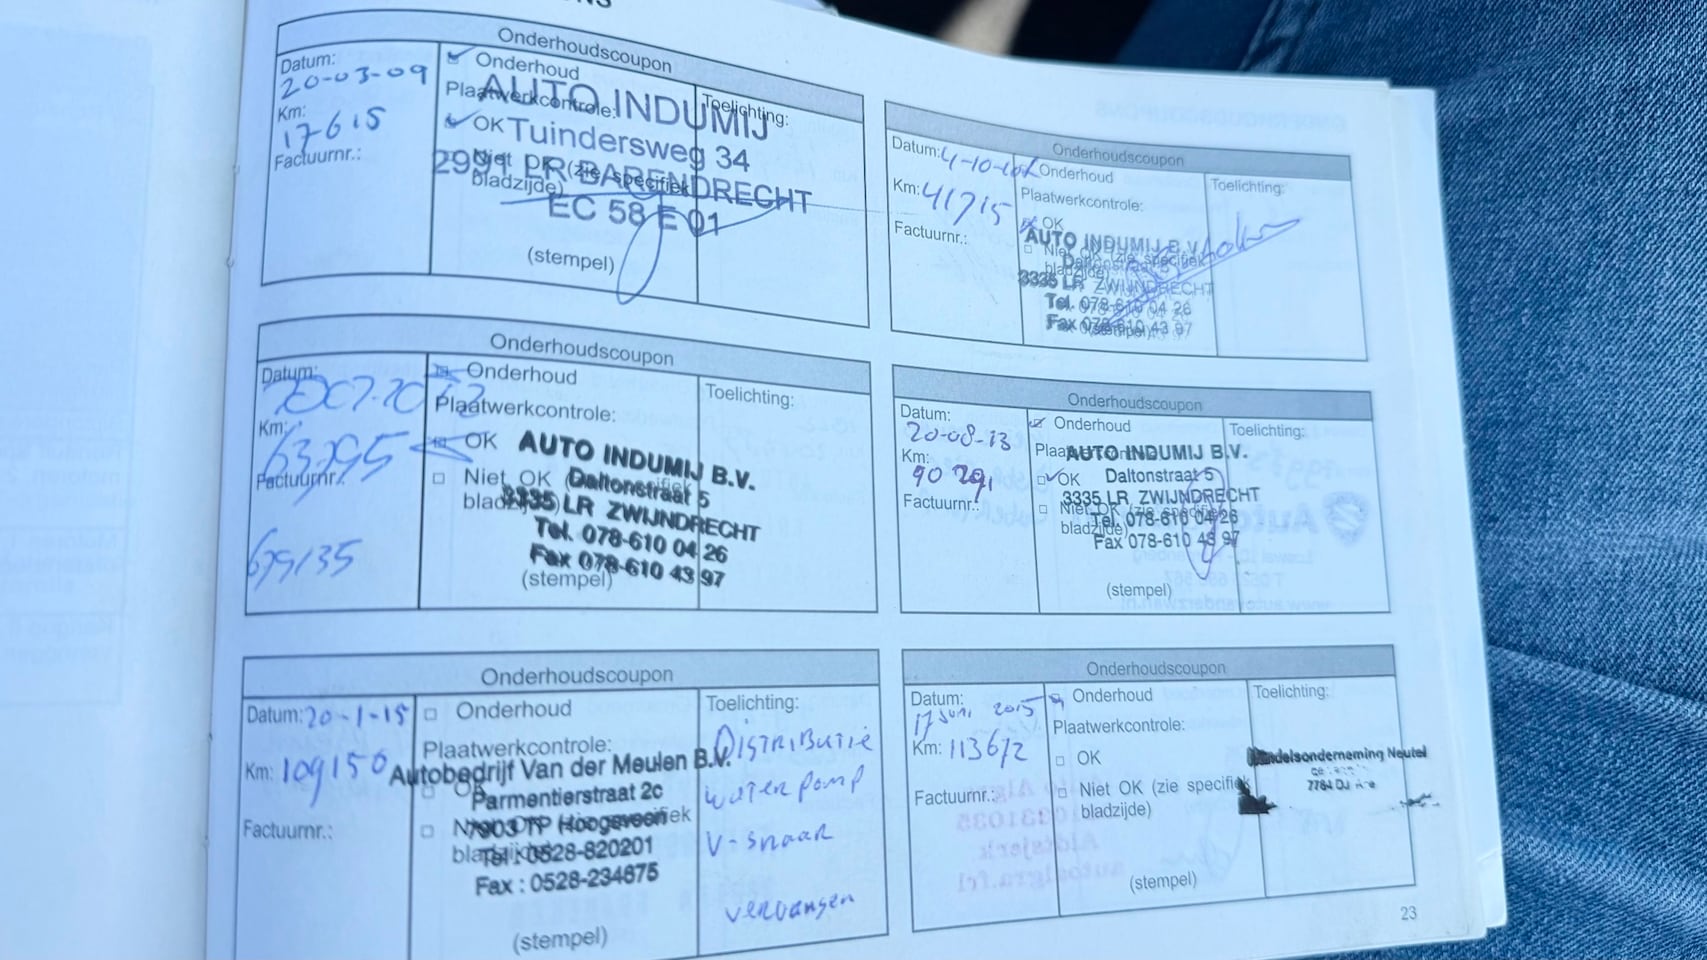 Onderhoudscoupon
Datum:
20-03-09
Km:
17615
Factuurnr.:
Onderhoud
Plaatwerkcontrole:
OK
Niet OK (zie specifiek
bladzijde)
AUTO INDUMIJ
Tuindersweg 34
2991 LR BARENDRECHT
EC 58 E 01
(stempel)
Toelichting:
Onderhoudscoupon
Datum:
Km: 41715
Factuurnr.:
Onderhoud
Plaatwerkcontrole:
OK
Niet OK (zie specifiek
bladzijde)
AUTO INDUMIJ B.V.
Daltonstraat 5
3335 LR ZWIJNDRECHT
Tel. 078-610 04 26
Fax 078-610 43 97
(stempel)
Toelichting:
Onderhoudscoupon
Datum:
Km:
Factuurnr.:
Onderhoud
Plaatwerkcontrole:
OK
Niet OK
bladzijde)
AUTO INDUMIJ B.V.
Daltonstraat 5
3335 LR ZWIJNDRECHT
Tel. 078-610 04 26
Fax 078-610 43 97
(stempel)
Toelichting:
Onderhoudscoupon
Datum:
20-08-13
Km:
90 291
Factuurnr.:
Onderhoud
OK
Niet OK (zie specifiek
bladzijde)
AUTO INDUMIJ B.V.
Daltonstraat 5
3335 LR ZWIJNDRECHT
Tel. 078-610 04 26
Fax 078-610 43 97
(stempel)
Toelichting:
Onderhoudscoupon
Datum: 20-1-15
Km: 109150
Factuurnr.:
Onderhoud
Plaatwerkcontrole:
OK
Autobedrijf Van der Meulen B.V.
Parmentierstraat 2c
7903 TP Hoogeveen
Tel : 0528-820201
Fax : 0528-234675
(stempel)
Toelichting:
Distributie
waterpomp
V-snaar
vervangen
Onderhoudscoupon
Datum:
17 Juni 2015
Km: 113672
Factuurnr.:
Onderhoud
Plaatwerkcontrole:
OK
Niet OK (zie specifiek
bladzijde)
(stempel)
Toelichting:
Neutel
23